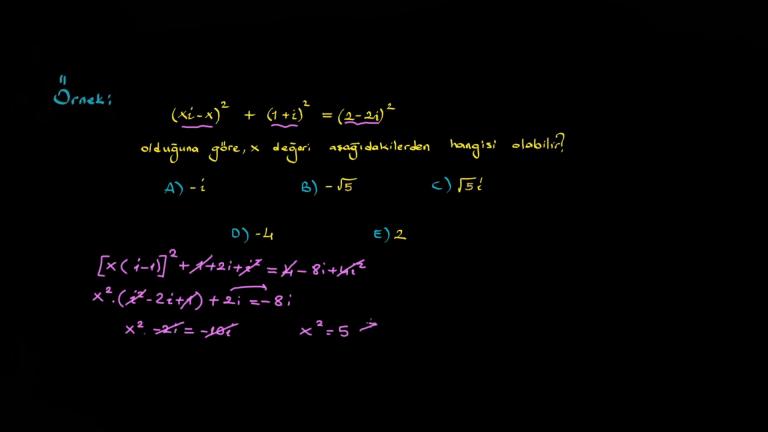 Örnek:
(xi-x)² + (1+i)² = (2-2i)²
olduğuna göre, x değeri aşağıdakilerden hangisi olabilir?
A) -i B) -√5 C) √5i
D) -4 E) 2
[x(i-1)]² + 1 + 2i + i² = 4 - 8i + 4i²
x² · (i² - 2i + 1) + 2i = -8i
x² · -2i = -10i x² = 5